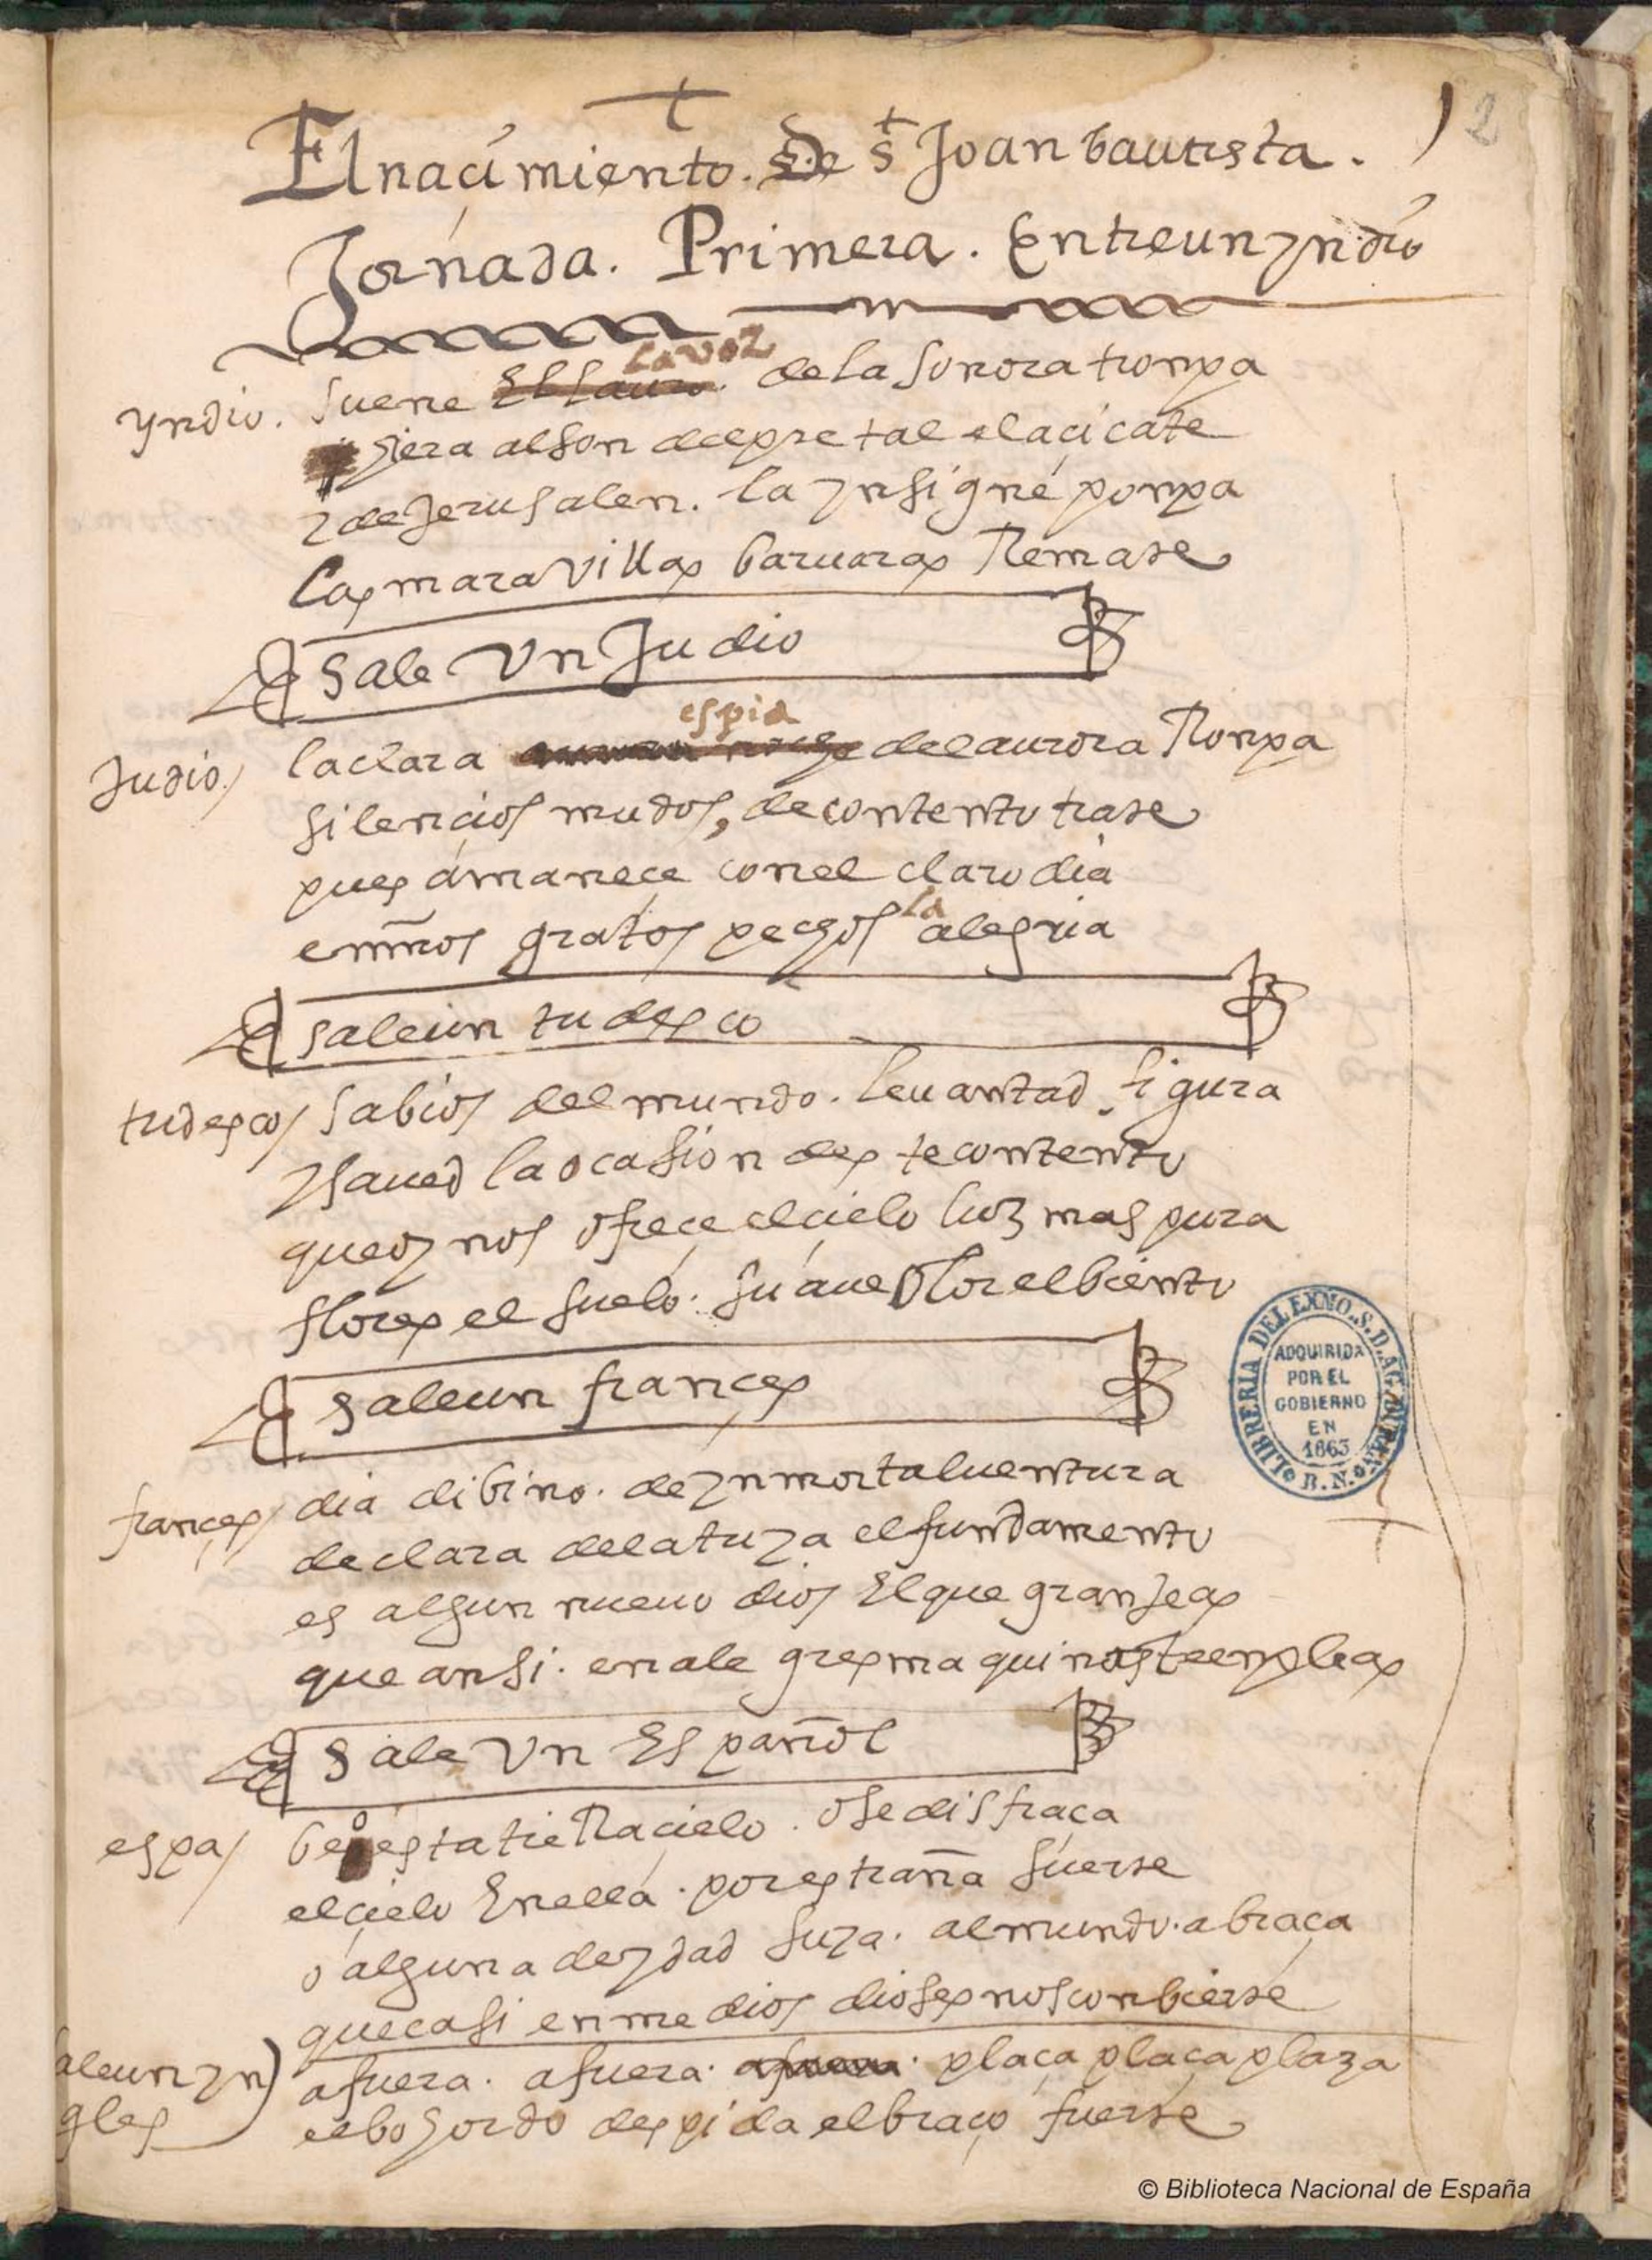 +
El nacimiento. De s.t Joan bautista. 2
Jornada. Primera. Entre un yndio
la voz
yndio. Suene de la sonora trompa
yera al son del pretal el acicate
y de Jerusalen. la ynsigne pompa
las marauillas baruaras Remate
Sale Vn Judio
espia
Judio/ la clara del aurora Rompa
silencios mudos, de contento trate
pues amanece con el claro dia
la
en nros gratos pechos alegria
sale un tudesco
tudesco/ sabios del mundo. leuantad figura
y saued la ocasion deste contento
que oy nos ofrece el cielo luz mas pura
flores el suelo. suaue olor el biento
sale un frances
frances/ dia dibino. de ynmortal uentura
declara de la tuya el fundamento
es algun nueuo dios El que granjeas
que ansi. en alegres maquinas te enpleas
Sale Vn Español
espa/ o es ta tierra cielo. o se disfraça
el cielo En ella. por estraña suerte
o alguna deydad suya. al mundo. abraça
que casi en medios dioses nos conbierte
sale un yn) afuera. afuera. afuera. plaça plaça plaza
gles el bohordo despida el braço fuerte
LIBRERIA DEL EXMO. S. D. AG. DURAN
ADQUIRIDA
POR EL
GOBIERNO
EN
1863
B. N.
© Biblioteca Nacional de España